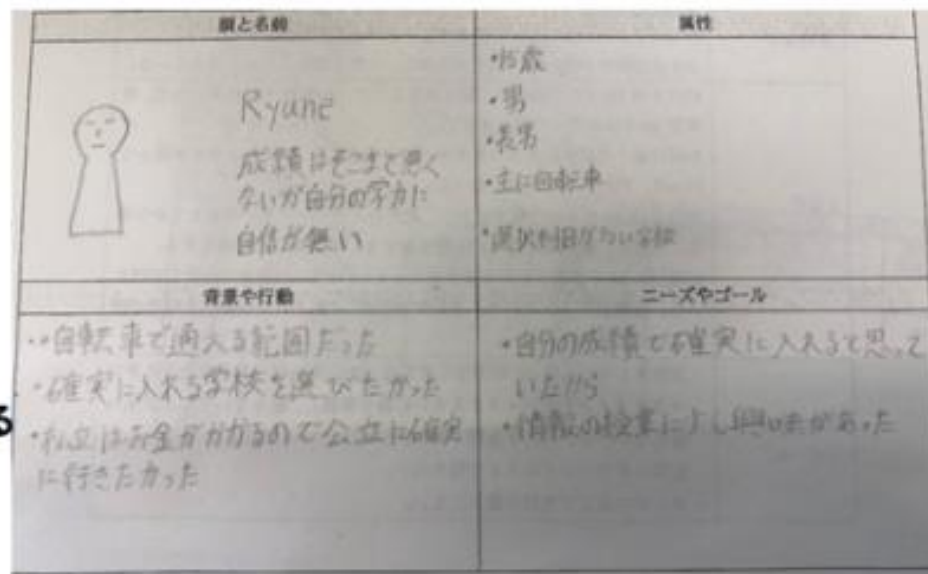 顔と名前
Ryune
成績はそこまで悪く
ないが自分の学力に
自信が無い
属性
・15歳
・男
・長男
・主に自転車
・選択 がない学校
背景や行動
・自転車で通える範囲だった
・確実に入れる学校を選びたかった
・私立はお金がかかるので公立に確実
に行きたかった
ニーズやゴール
・自分の成績で確実に入れると思って
いたから
・情報の授業に少し興味があった
る